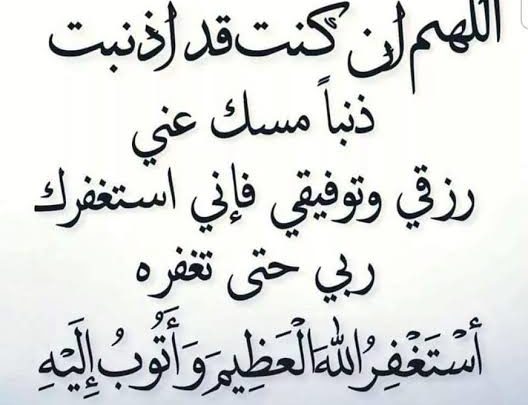 اللهم إن كنت قد أذنبت
ذنباً مسك عني
رزقي وتوفيقي فإني استغفرك
ربي حتى تغفره
أَسْتَغْفِرُ اللهَ الْعَظِيمَ وَأَتُوبُ إِلَيْهِ